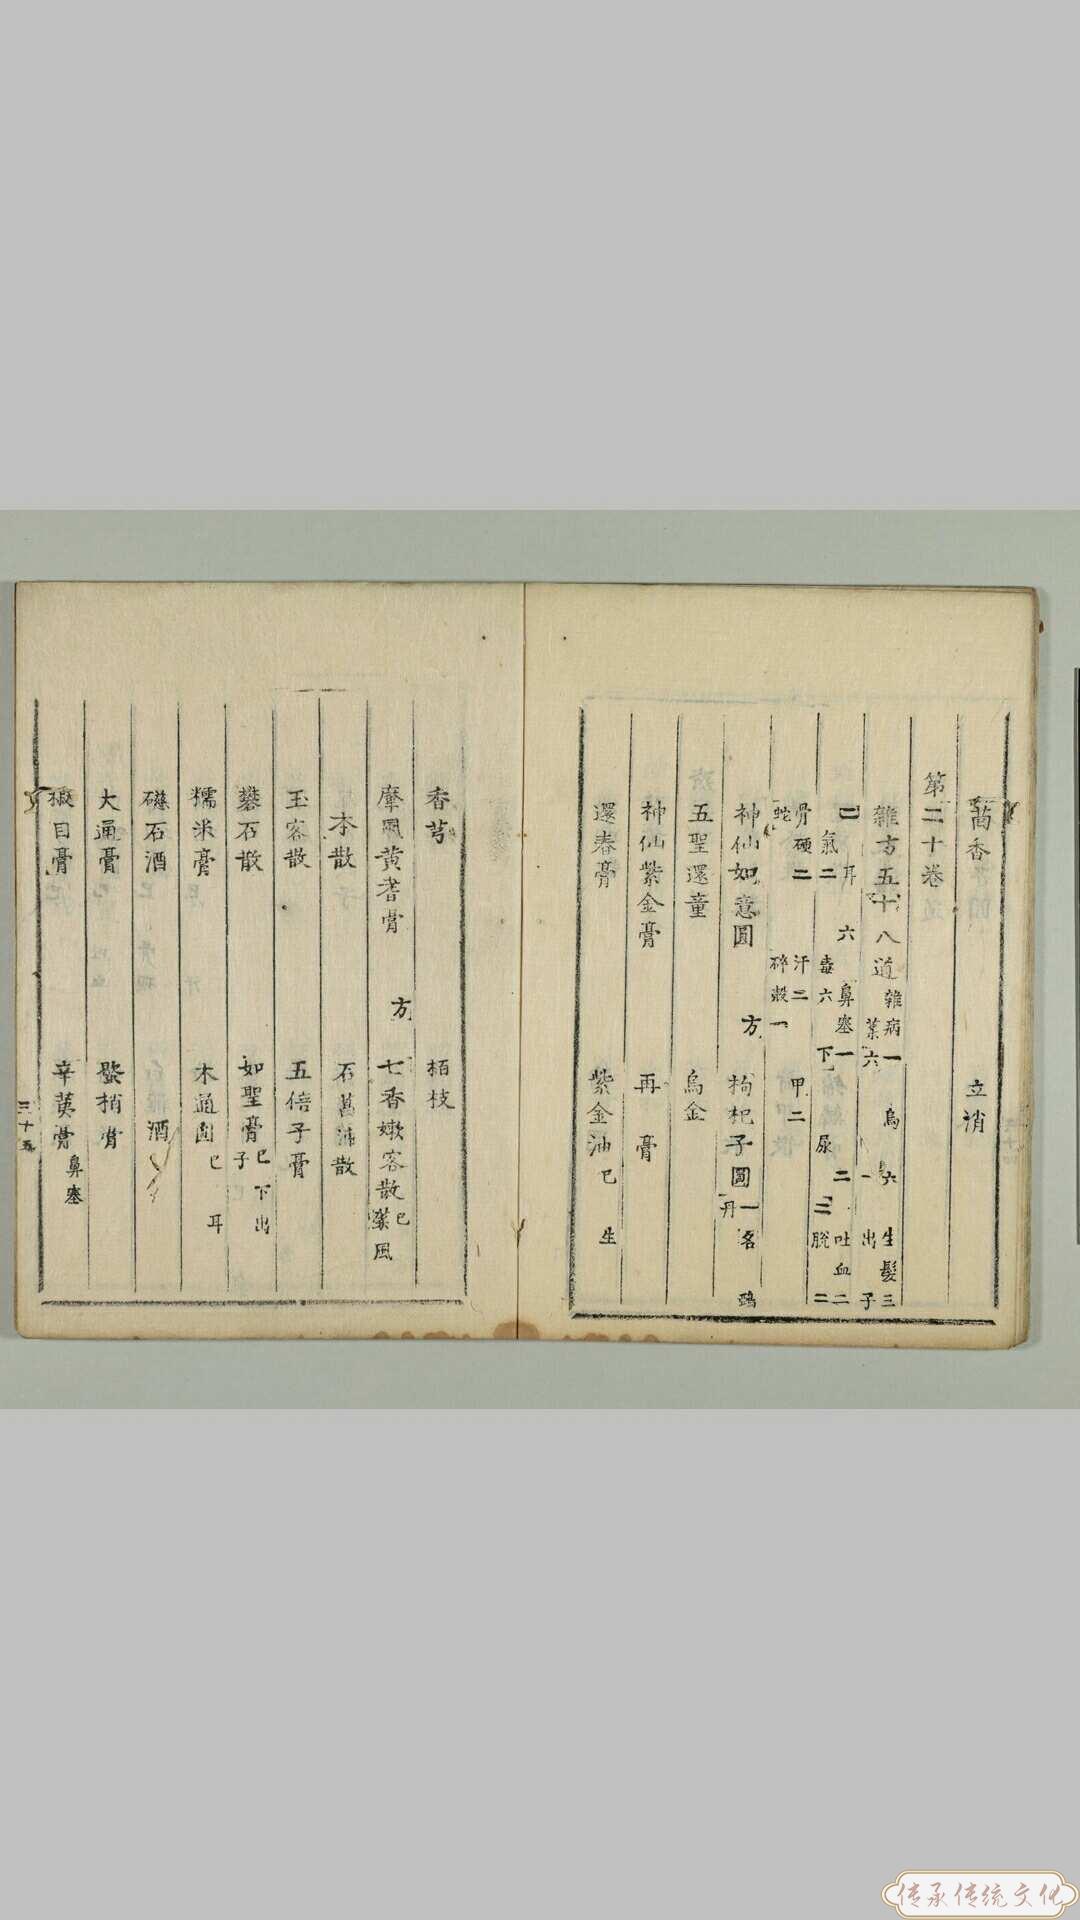 茴香 立消
第二十卷
雜方五十八道 雜病一 烏 六 生髮三
葉六 一 出子
六 鼻塞一 二 吐血二
氣二 毒六 下 尿 二 脫二
骾二 汗二 甲二
蛇 碎穀一
神仙如意圓 方 枸杞子圓 一名
丹
五聖還童 烏金
神仙紫金膏 再 膏
還春膏 紫金油 巳 生
香芎 栢枝
摩風黃耆膏 方 七香嫩容散 巳 風
本散 石菖蒲散
玉容散 五倍子膏
礬石散 如聖膏 巳下出
子
糯米膏 木通圓 巳 耳
磁石酒 酒
大通膏 膏
椒目膏 辛荑膏 鼻塞
三十五
传承传统文化